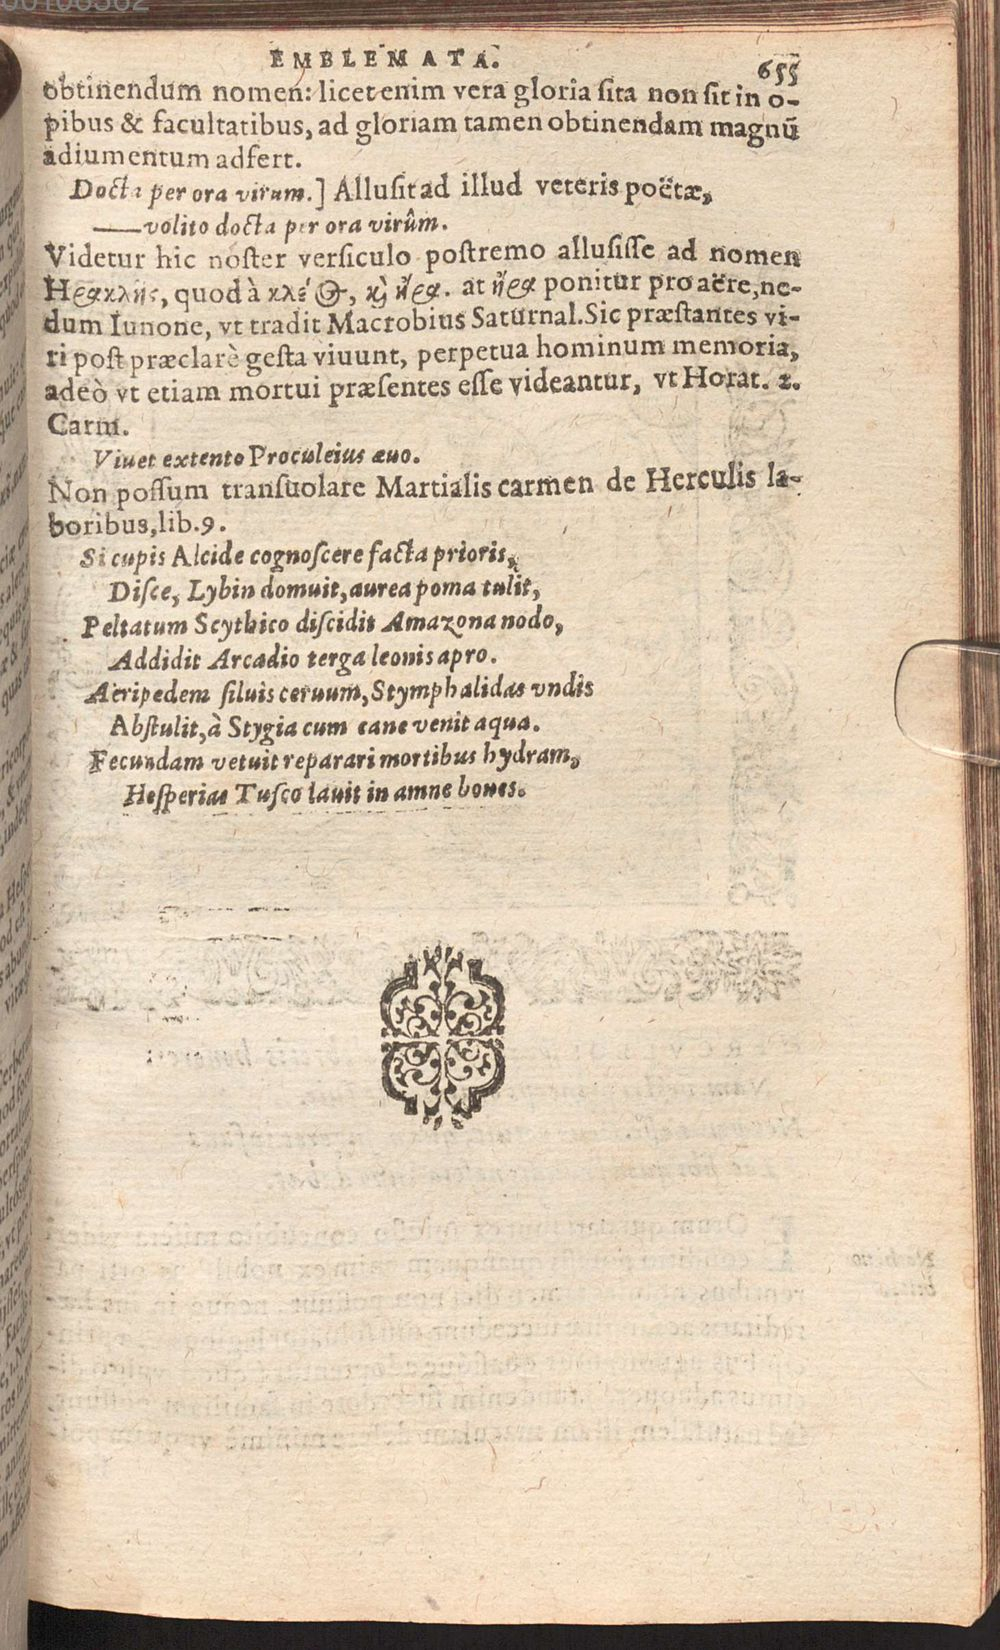 EMBLEMATA. 655
obtinendum nomen: licet enim vera gloria sita non sit in o-
pibus & facultatibus, ad gloriam tamen obtinendam magnũ
adiumentum adfert.
Docta per ora virum.] Allusit ad illud veteris poëtæ,
——volito docta per ora virûm.
Videtur hic noster versiculo postremo allusisse ad nomen
Ηρακλῆς, quod à κλέ(ος), κ̀ ἥρα. at ἥρα ponitur pro aëre, ne-
dum Iunone, vt tradit Macrobius Saturnal. Sic præstantes vi-
ri post præclarè gesta viuunt, perpetua hominum memoria,
adeò vt etiam mortui præsentes esse videantur, vt Horat. 2.
Carm.
Viuet extento Proculeius æuo.
Non possum transuolare Martialis carmen de Herculis la-
boribus, lib. 9.
Si cupis Alcide cognoscere facta prioris,
Disce, Lybin domuit, aurea poma tulit,
Peltatum Scythico discidit Amazona nodo,
Addidit Arcadio terga leonis apro.
Aëripedem siluis ceruum, Stymphalidas vndis
Abstulit, à Stygia cum cane venit aqua.
Fecundam vetuit reparari mortibus hydram,
Hesperias Tusco lauit in amne boues.